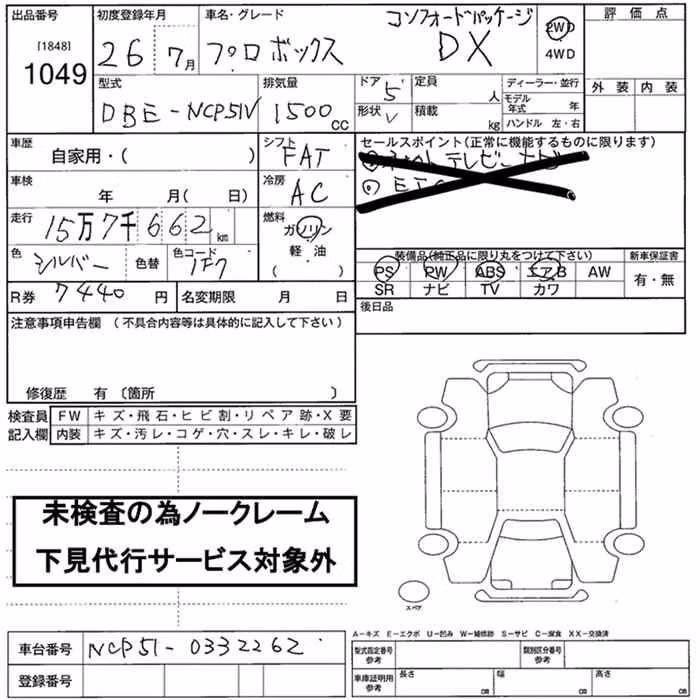 出品番号
[1848]
1049
初度登録年月
26 7月
車名・グレード
プロボックス コンフォートパッケージ
DX
2WD
4WD
評価点
外装 内装
型式
DBE-NCP51V
排気量
1500cc
ドア 5
形状 V
定員 人
積載 kg
ディーラー・並行
モデル年式 年
ハンドル 左・右
車歴
自家用・( )
シフト FAT
セールスポイント(正常に機能するものに限ります)
テレビ
車検 年 月( 日)
冷房 AC
走行 15万7千662km
燃料 ガソリン
軽・油
( )
色 シルバー
色替
色コード 1F7
装備品(純正品に限り丸をつけて下さい)
PS PW ABS エアB AW
SR ナビ TV カワ
新車保証書
有・無
R券 7440円
名変期限 月 日
後日品
注意事項申告欄(不具合内容等は具体的に記入して下さい)
修復歴 有〔箇所 〕
検査員記入欄
FW キズ・飛石・ヒビ割・リペア跡・X要
内装 キズ・汚レ・コゲ・穴・スレ・キレ・破レ
未検査の為ノークレーム
下見代行サービス対象外
スペア
A−キズ E−エクボ U−凹み W−補修跡 S−サビ C−腐食 XX−交換済
車台番号 NCP51-0332262
登録番号
型式指定番号
参考
類別区分番号
参考
車庫証明用
参考
長さ cm
幅 cm
高さ cm